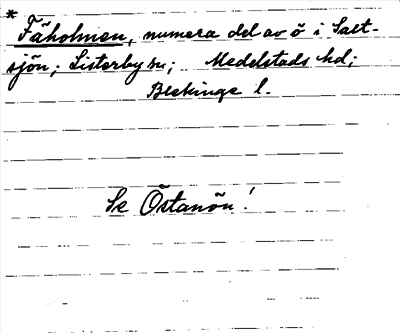 * Fäholmen, numera del av ö i Salt-
sjön; Listerby sn; Medelstads hd;
Blekinge l.
Se Östanön!